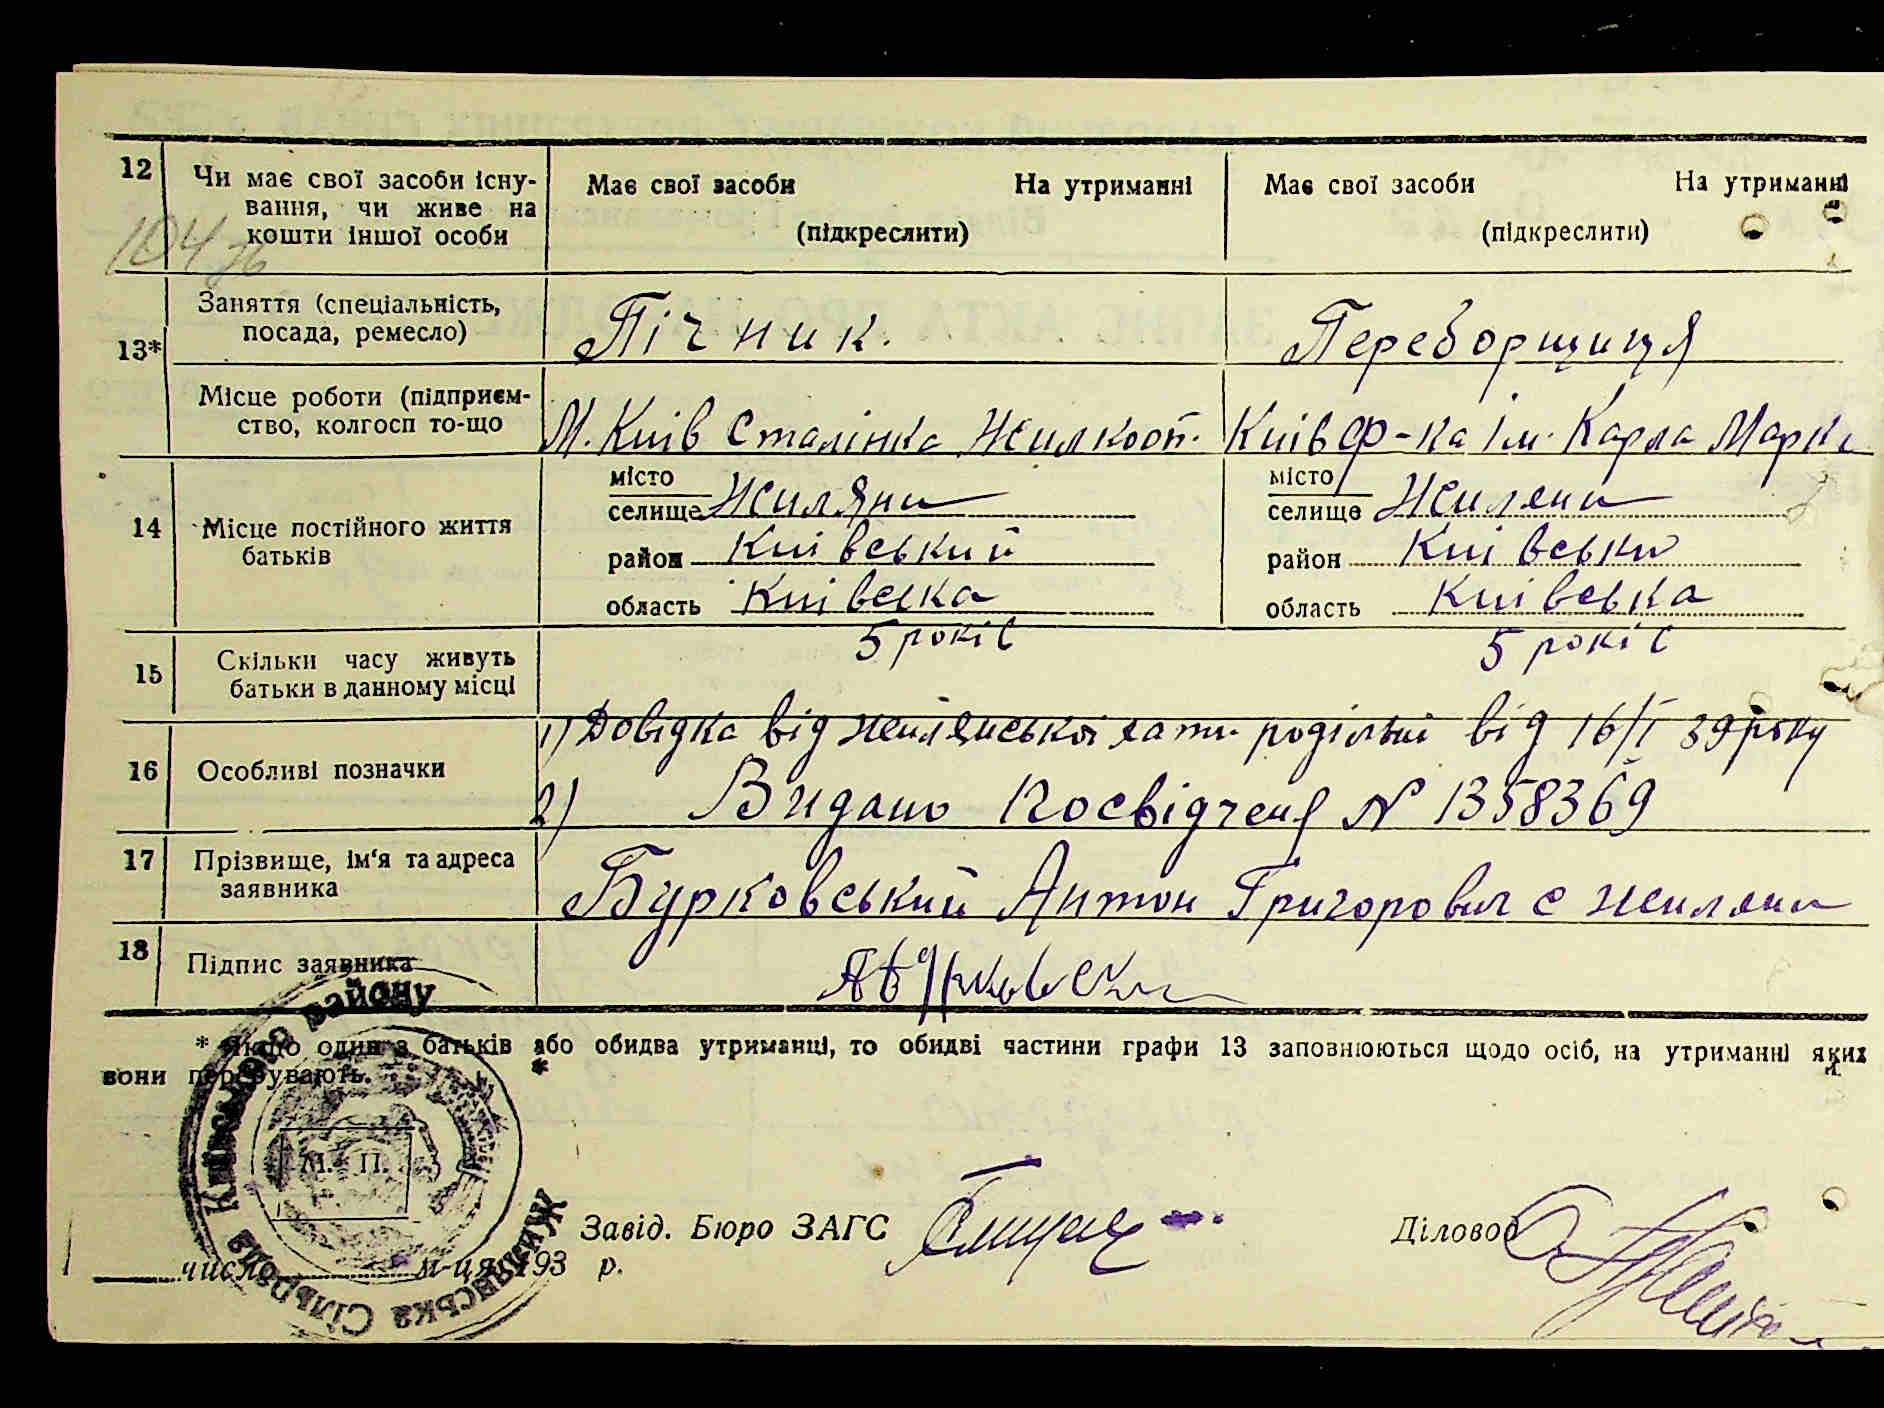 12 Чи має свої засоби існу- Має свої засоби На утриманні Має свої засоби На утриманні
вання, чи живе на
кошти іншої особи (підкреслити) (підкреслити)
104
Заняття (спеціальність, Пічник. Переборщиця
13* посада, ремесло)
Місце роботи (підприєм- М. Київ Сталінка Жилкооп. Київ ф-ка Ім. Карла Маркс
ство, колгосп то-що
місто місто
селище Жиляни селище Жиляни
14 Місце постійного життя
батьків район Київський район Київськи
область Київська область Київська
15 Скільки часу живуть 5 років 5 років
батьки в данному місці
1) Довідка від Жилянської хати родільні від 16/I 39 року
16 Особливі позначки
2) Видано Посвідченя № 1358369
17 Прізвище, ім‘я та адреса
заявника Бурковський Антон Григорович с Жиляни
18 Підпис заявника
* Якщо один з батьків або обидва утриманці, то обидві частини графи 13 заповнюються щодо осіб, на утриманні яких
вони перебувають.
Жилянська Сільрада Київського району
М. П.
Завід. Бюро ЗАГС Діловод
числа м-ця 193 р.